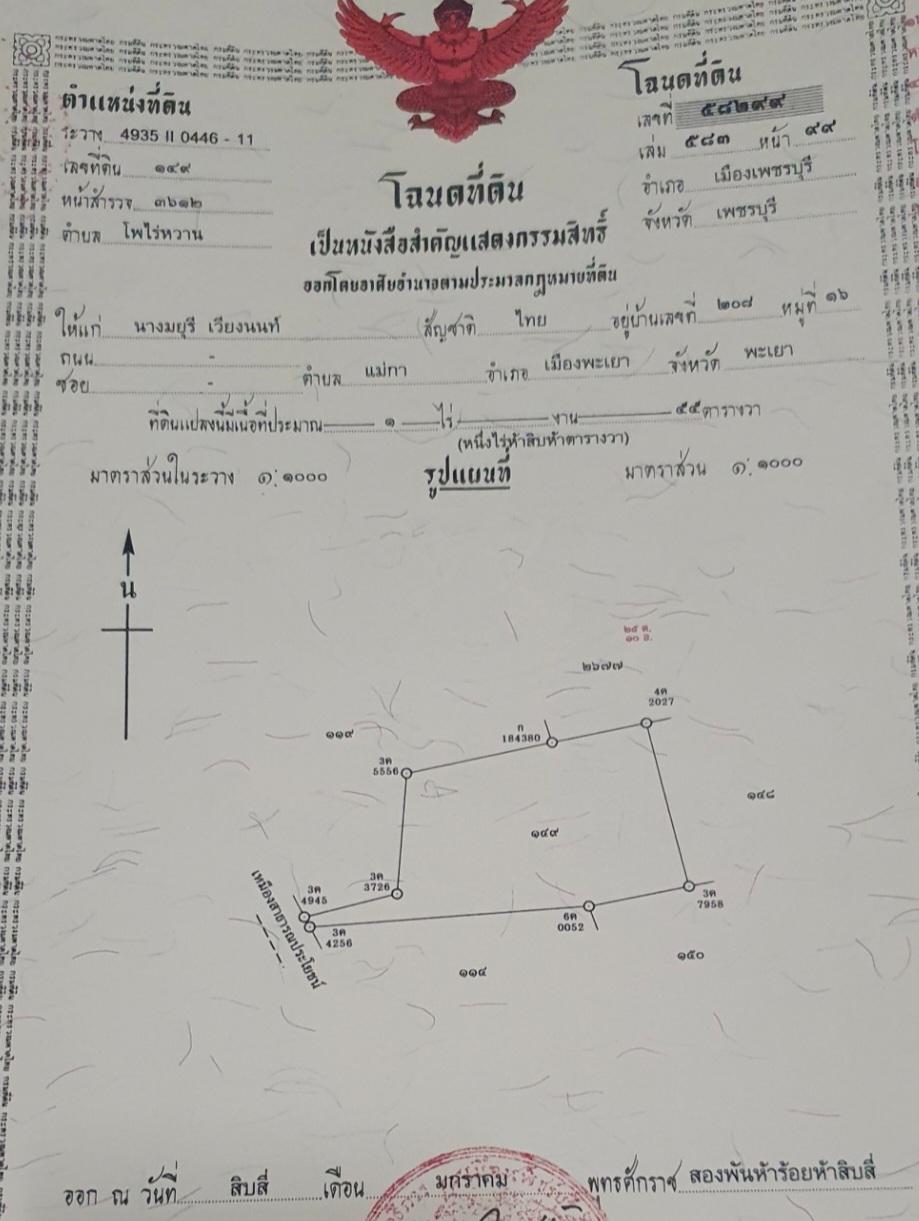 ตำแหน่งที่ดิน
ระวาง 4935 II 0446 - 11
เลขที่ดิน ๑๔๙
หน้าสำรวจ ๓๖๑๒
ตำบล โพไร่หวาน
โฉนดที่ดิน
เลขที่ ๕๘๒๙๙
เล่ม ๕๘๓ หน้า ๙๙
อำเภอ เมืองเพชรบุรี
จังหวัด เพชรบุรี
โฉนดที่ดิน
เป็นหนังสือสำคัญแสดงกรรมสิทธิ์
ออกโดยอาศัยอำนาจตามประมวลกฎหมายที่ดิน
ให้แก่ นางมยุรี เวียงนนท์ สัญชาติ ไทย อยู่บ้านเลขที่ ๒๐๘ หมู่ที่ ๑๖
ถนน -
ซอย - ตำบล แม่กา อำเภอ เมืองพะเยา จังหวัด พะเยา
ที่ดินแปลงนี้มีเนื้อที่ประมาณ ๑ ไร่ งาน ๕๕ ตารางวา
(หนึ่งไร่ห้าสิบห้าตารางวา)
มาตราส่วนในระวาง ๑:๑๐๐๐ รูปแผนที่ มาตราส่วน ๑:๑๐๐๐
น
๒๕ ต.
๑๐ อ.
๒๖๗๗
4ค
2027
ก
184380
๑๑๙
3ค
5556
๑๔๘
๑๔๙
3ค
3726
3ค
4945
3ค
7958
6ค
0052
3ค
4256
เหมืองสาธารณประโยชน์
๑๑๔
๑๕๐
ออก ณ วันที่ สิบสี่ เดือน มกราคม พุทธศักราช สองพันห้าร้อยห้าสิบสี่